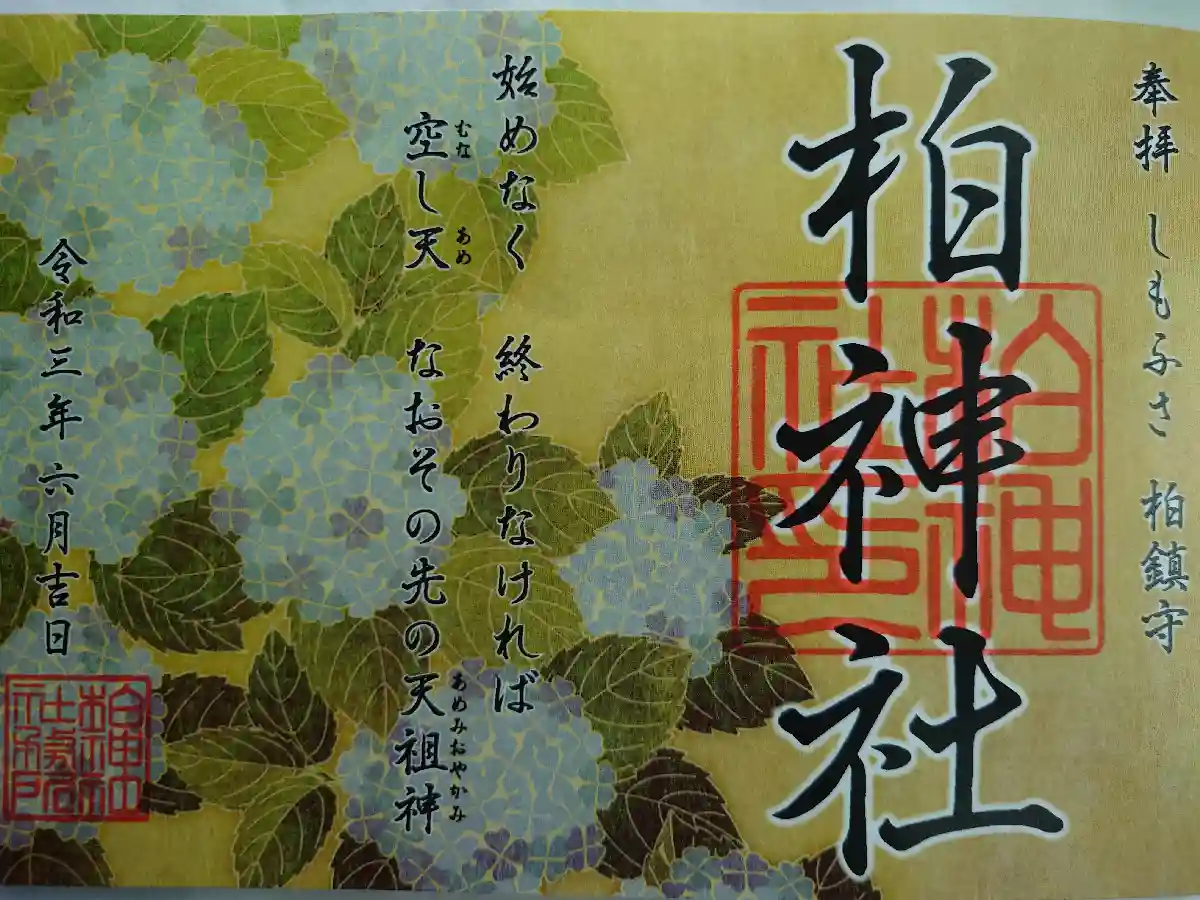 奉拝 しもふさ 柏鎮守
柏神社
柏神社印
始めなく 終わりなければ
空し天 なおその先の天祖神
むな
あめ
あめみおやかみ
令和三年 六月吉日